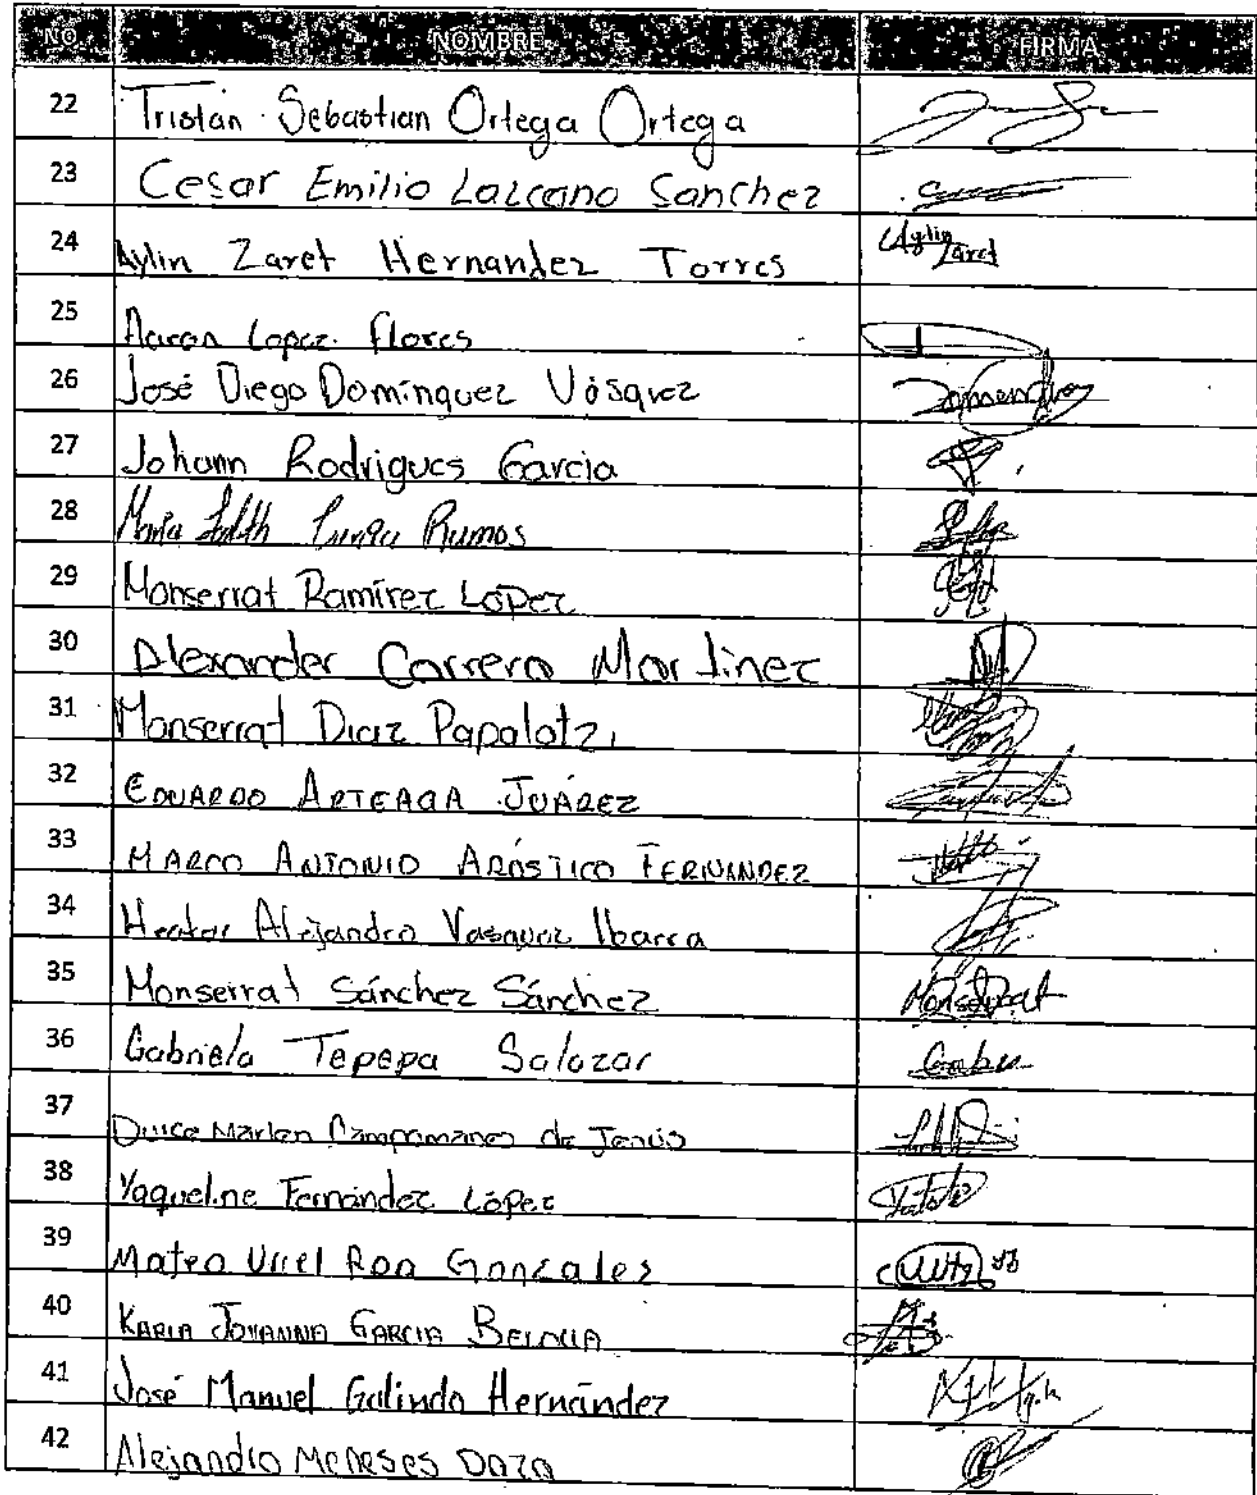 NO. NOMBRE FIRMA
22 Tristan Sebastian Ortega Ortega
23 Cesar Emilio Lazcano Sanchez
24 Aylin Zaret Hernandez Torres Aylin Zaret
25 Aaron Lopez Flores
26 José Diego Domínguez Vásquez
27 Johann Rodrigues Garcia
28 Maria Ramos
29 Monserrat Ramírez López
30 Alexander Carrera Martinez
31 Monserrat Diaz Papalotzi
32 EDUARDO ARTEAGA JUÁREZ
33 MARCO ANTONIO ARÓSTICO FERNANDEZ
34 Hector Alejandro Vasquez Ibarra
35 Monserrat Sánchez Sánchez Monserrat
36 Gabriela Tepepa Salazar
37 Dulce Marlen Campomanes de Jesús
38 Yaqueline Fernández López
39 Mateo Uriel Roa Gonzales
40 KARLA JOVANNA GARCIA
41 José Manuel Galindo Hernández
42 Alejandro Meneses Daza